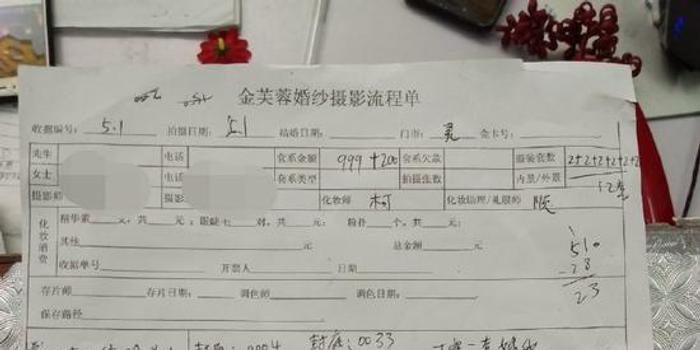 金芙蓉婚纱摄影流程单
收据编号: 5.1 拍摄日期: 5.1 结婚日期: 门市: 金卡号:
先生 电话 套系金额 999+200 套系欠款 服装套数 2+2+2+2+2+2
女士 电话 套系类型 拍摄张数 内景/外景 12套
摄影师 摄影 化妆师 柯 化妆助理/礼服师
化妆消费
精华素 支, 共 元; 眼睫毛 对, 共 元; 粉扑 个, 共 元;
其他 元 总金额 元 510
收据单号 开票人 日期 -28
存片师 存片日期: 调色师 调色日期: 23
保存路径
封底: 0033